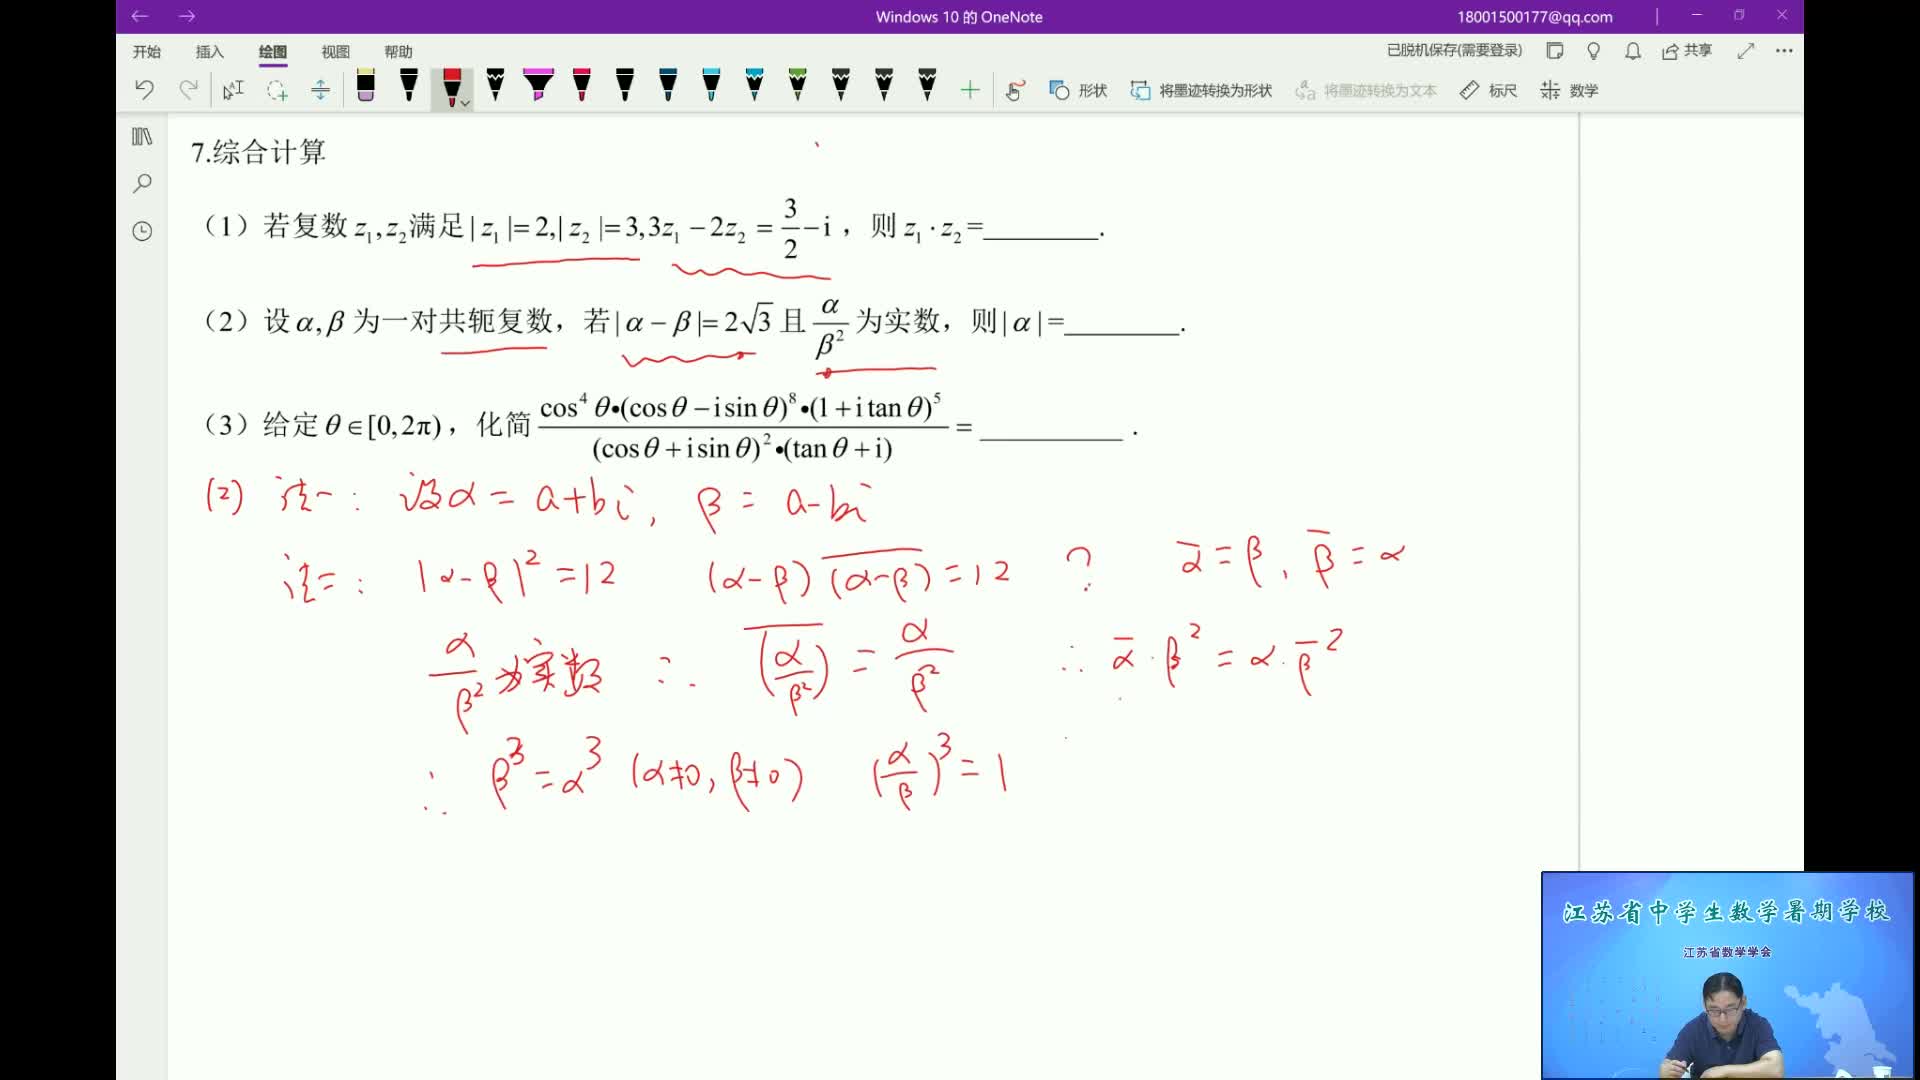 Windows 10 的 OneNote
18001500177@qq.com
开始 插入 绘图 视图 帮助
已脱机保存(需要登录) 共享
形状 将墨迹转换为形状 将墨迹转换为文本 标尺 数学
7.综合计算
（1）若复数 z₁,z₂满足| z₁ |= 2,| z₂ |= 3,3z₁ − 2z₂ = 3/2 − i ，则 z₁ · z₂ =________.
（2）设 α,β 为一对共轭复数，若| α − β |= 2√3 且 α/β² 为实数，则| α | =________.
（3）给定 θ ∈[0,2π)，化简 cos⁴ θ•(cosθ − i sin θ)⁸•(1 + i tan θ)⁵ / (cosθ + i sin θ)²•(tan θ + i) = __________ .
(2) 法一: 设α = a+bi, β = a-bi
法二: |α-β|² =12 (α-β)(α-β)‾=12 ? ᾱ = β, β̄ = α
α/β² 为实数 ∴ (α/β²)‾ = α/β² ∴ ᾱ·β² = α·β̄²
∴ β³ = α³ (α≠0, β≠0) (α/β)³ = 1
江苏省中学生数学暑期学校
江苏省数学学会